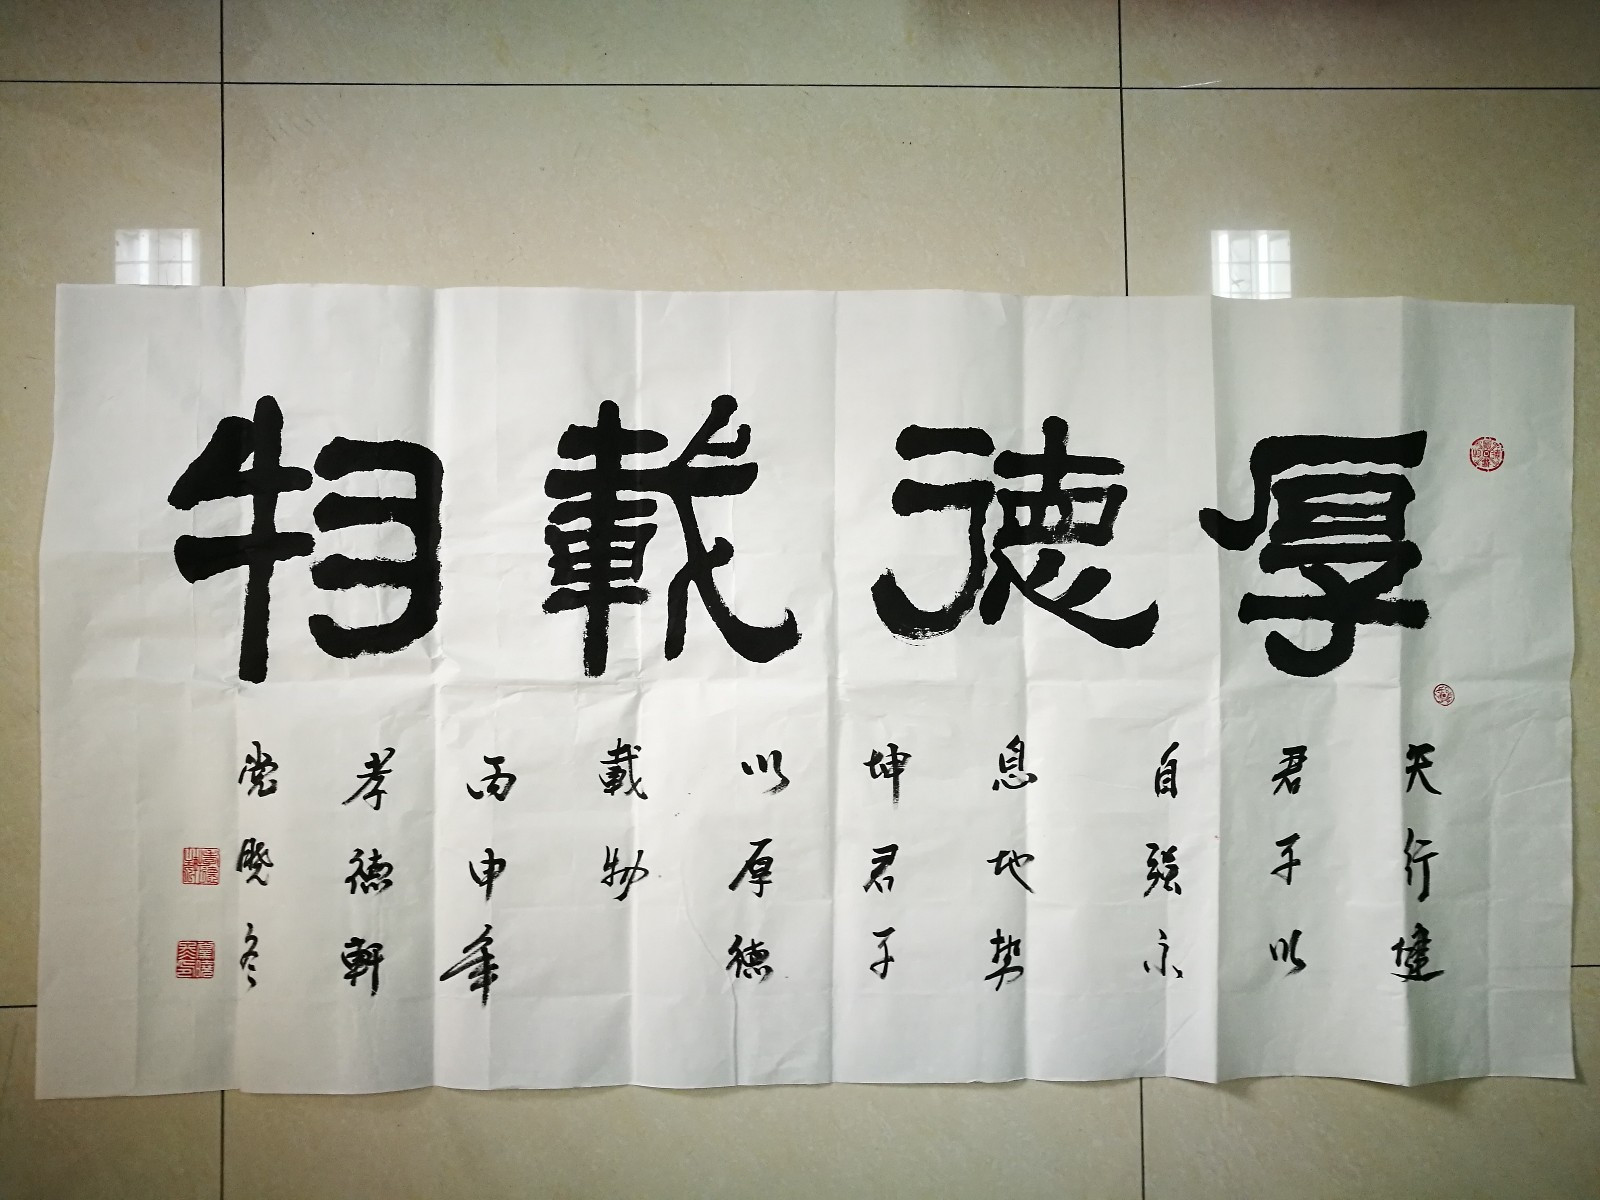 厚德載物
天行健
君子以
自強不
息地势
坤君子
以厚德
載物
丙申年
孝德軒
党曉冬